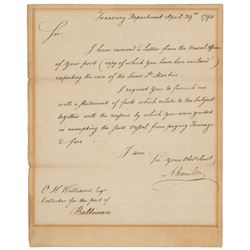 Treasury Department April 29th 1790
Sir
I have received a Letter from the Naval Officer
of Your port (copy of which You have here inclosed)
respecting the case of the Snow St. Martin.
I request You to furnish me
with a statement of facts which relate to the Subject
together with the reasons by which You were guided
in exempting the said Vessel from paying Tonnage
& fees
I am
Sir Your Obed Servt
A Hamilton
O. H. Williams Esqr
Collector for the port of
Baltimore